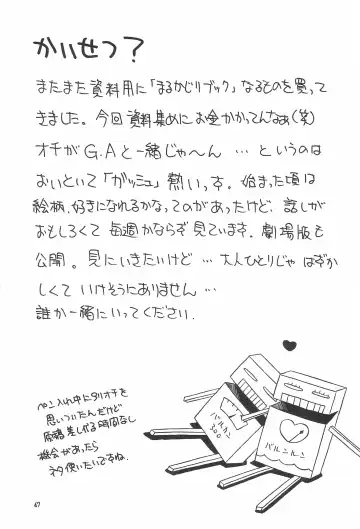 かいせつ？
またまた資料用に「まるかじりブック」なるものを買って
きました。今回資料集めにお金かかってんなぁ(笑)
オチがG.Aと一緒じゃ〜ん … というのは
おいといて「ガッシュ」熱いっす。始まった頃は
絵柄、好きになれるかなってのがあったけど、話しが
おもしろくて毎週かならず見ています。劇場版も
公開。見にいきたいけど … 大人ひとりじゃはずか
しくていけそうにありません …
誰か一緒にいってください。
ペン入れ中に別オチを
思いついたんだけど
原稿差しかえる時間なし
機会があったら
ネタ使いたいですね。
バルカン
300
バルニルン
47